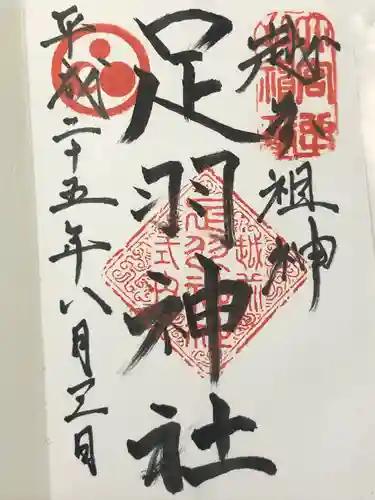 越之祖神
足羽神社
平成二十五年八月三日